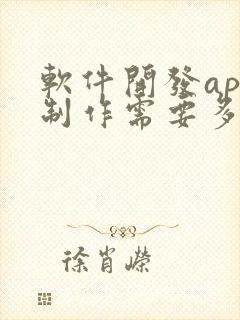 軟件開發ap
制作需要多
徐肖嶸